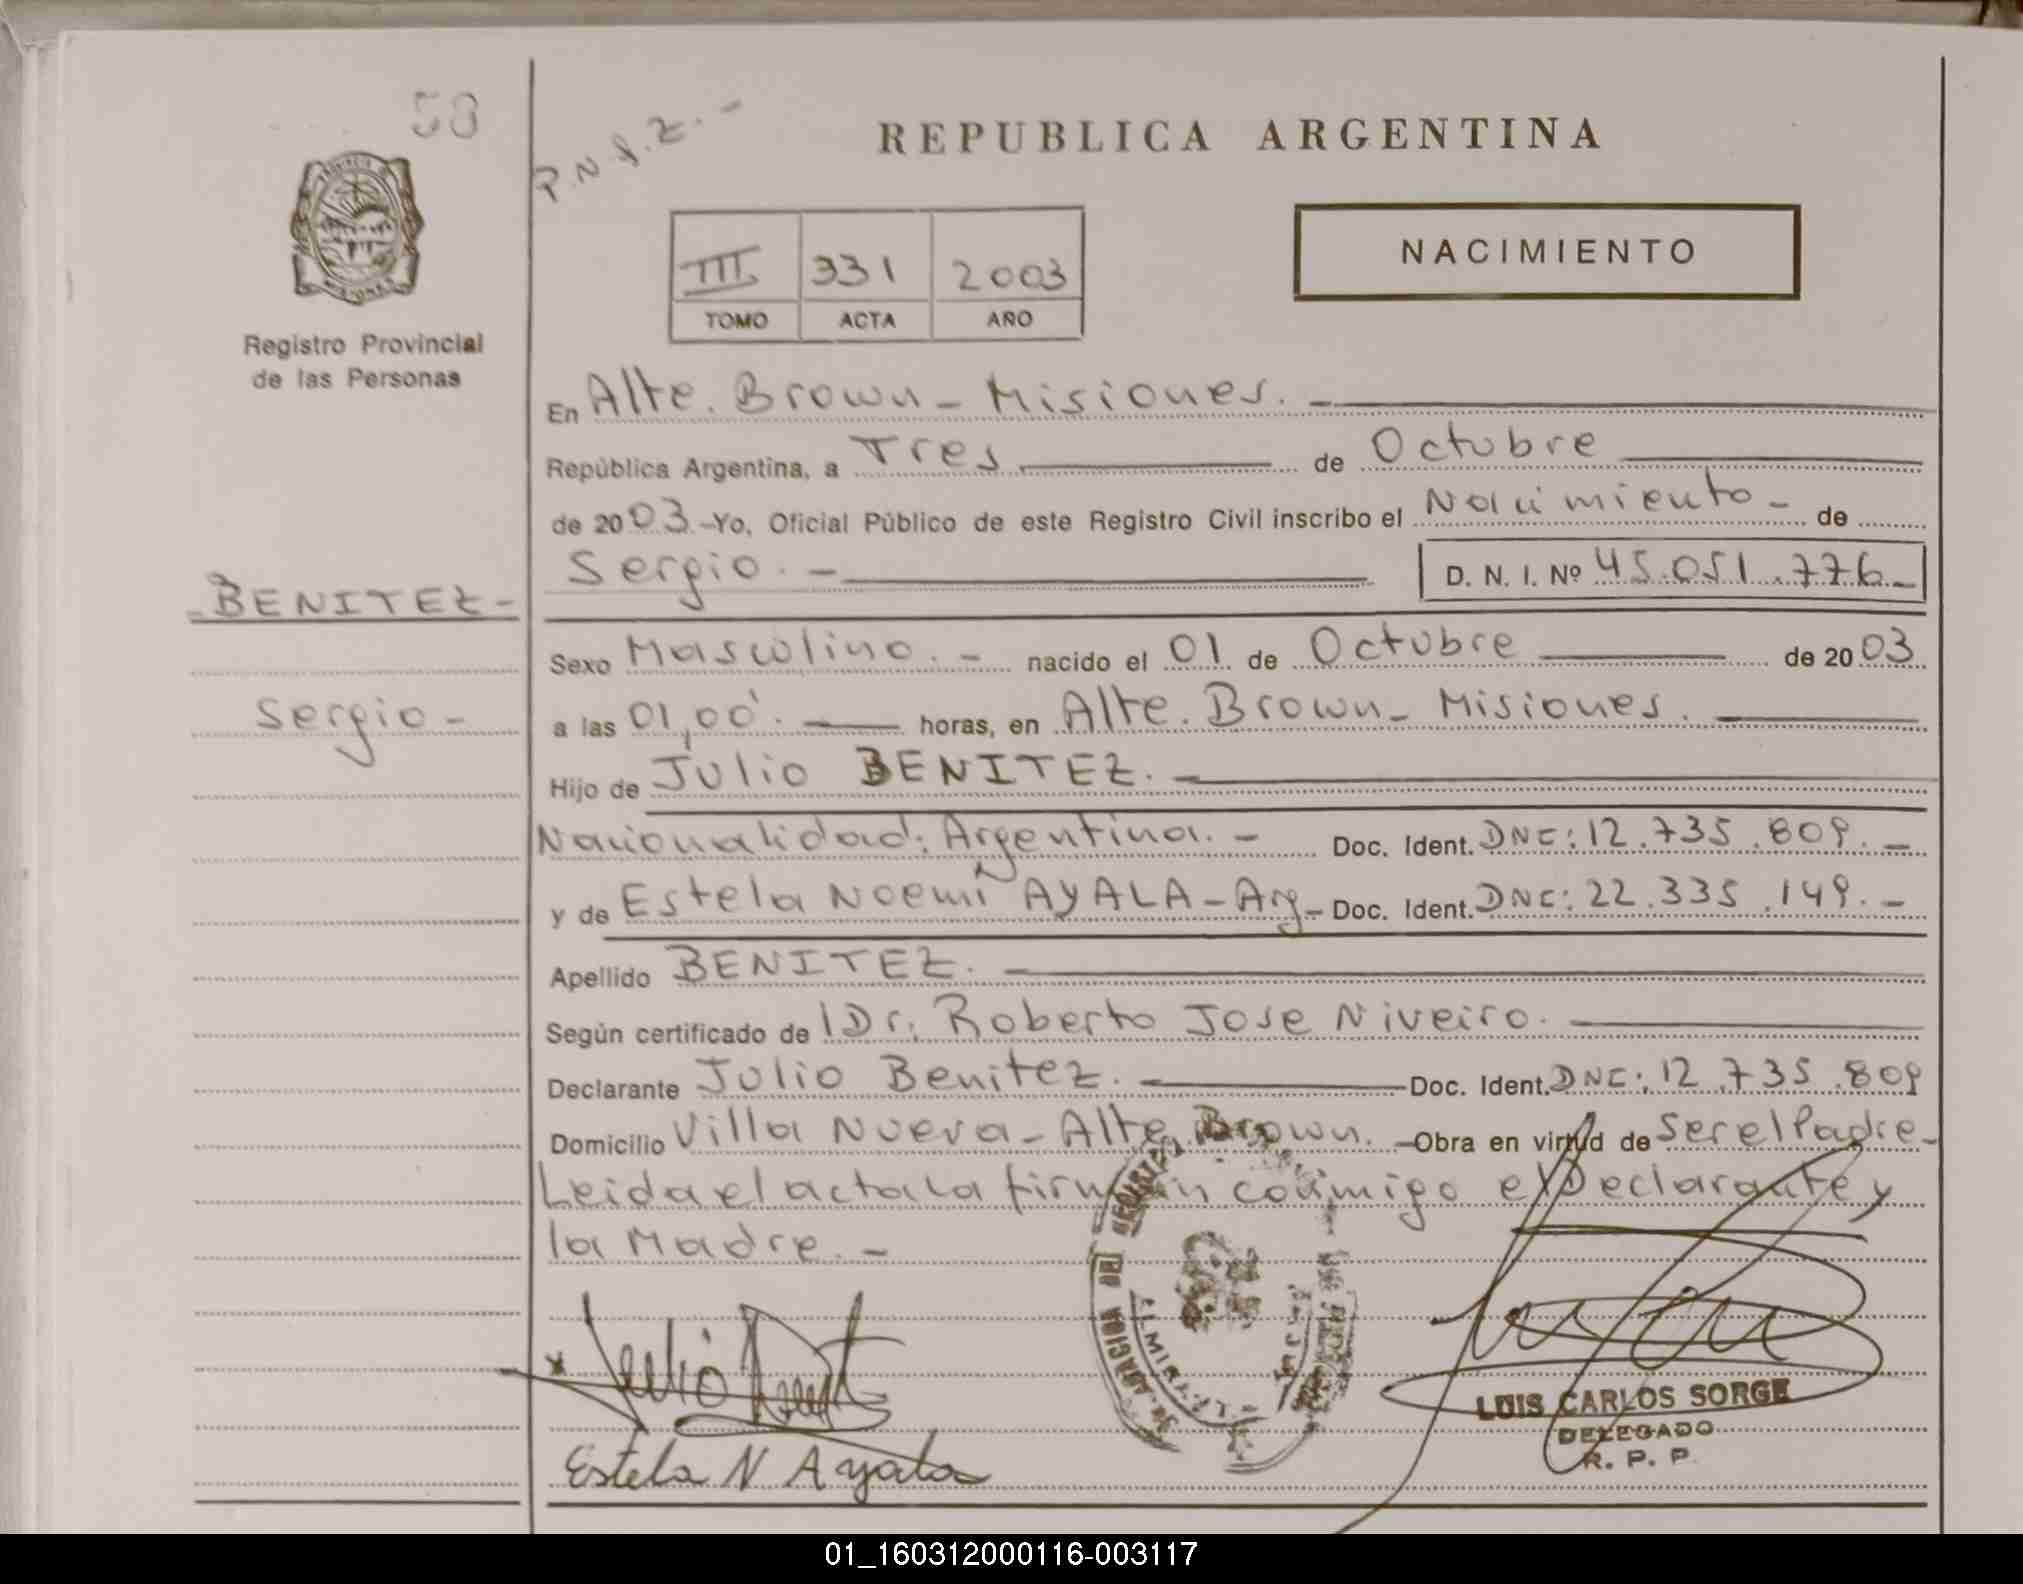 58
P.N.S.Z.-
REPUBLICA ARGENTINA
NACIMIENTO
III 331 2003
TOMO ACTA AÑO
MISIONES
Registro Provincial
de las Personas
En Alte. Brown - Misiones. -
República Argentina, a Tres de Octubre
de 2003.-Yo, Oficial Público de este Registro Civil inscribo el Nacimiento - de
Sergio. - D. N. I. Nº 45.051.776-
-BENITEZ-
Sergio-
Sexo Masculino. - nacido el 01 de Octubre de 2003
a las 01,00. horas, en Alte. Brown - Misiones.
Hijo de Julio BENITEZ. -
Nacionalidad: Argentina. - Doc. Ident. DNI: 12.735.809. -
y de Estela Noemi AYALA - Arg - Doc. Ident. DNI: 22.335.149. -
Apellido BENITEZ. -
Según certificado de Dr. Roberto Jose Niveiro.
Declarante Julio Benitez. - Doc. Ident. DNI: 12.735.809
Domicilio Villa Nueva - Alte. Brown. - Obra en virtud de ser el Padre -
Leida el acta la firman conmigo el Declarante y
la Madre. -
Julio
Estela N Ayala
LUIS CARLOS SORGE
DELEGADO
R. P. P.
01_160312000116-003117